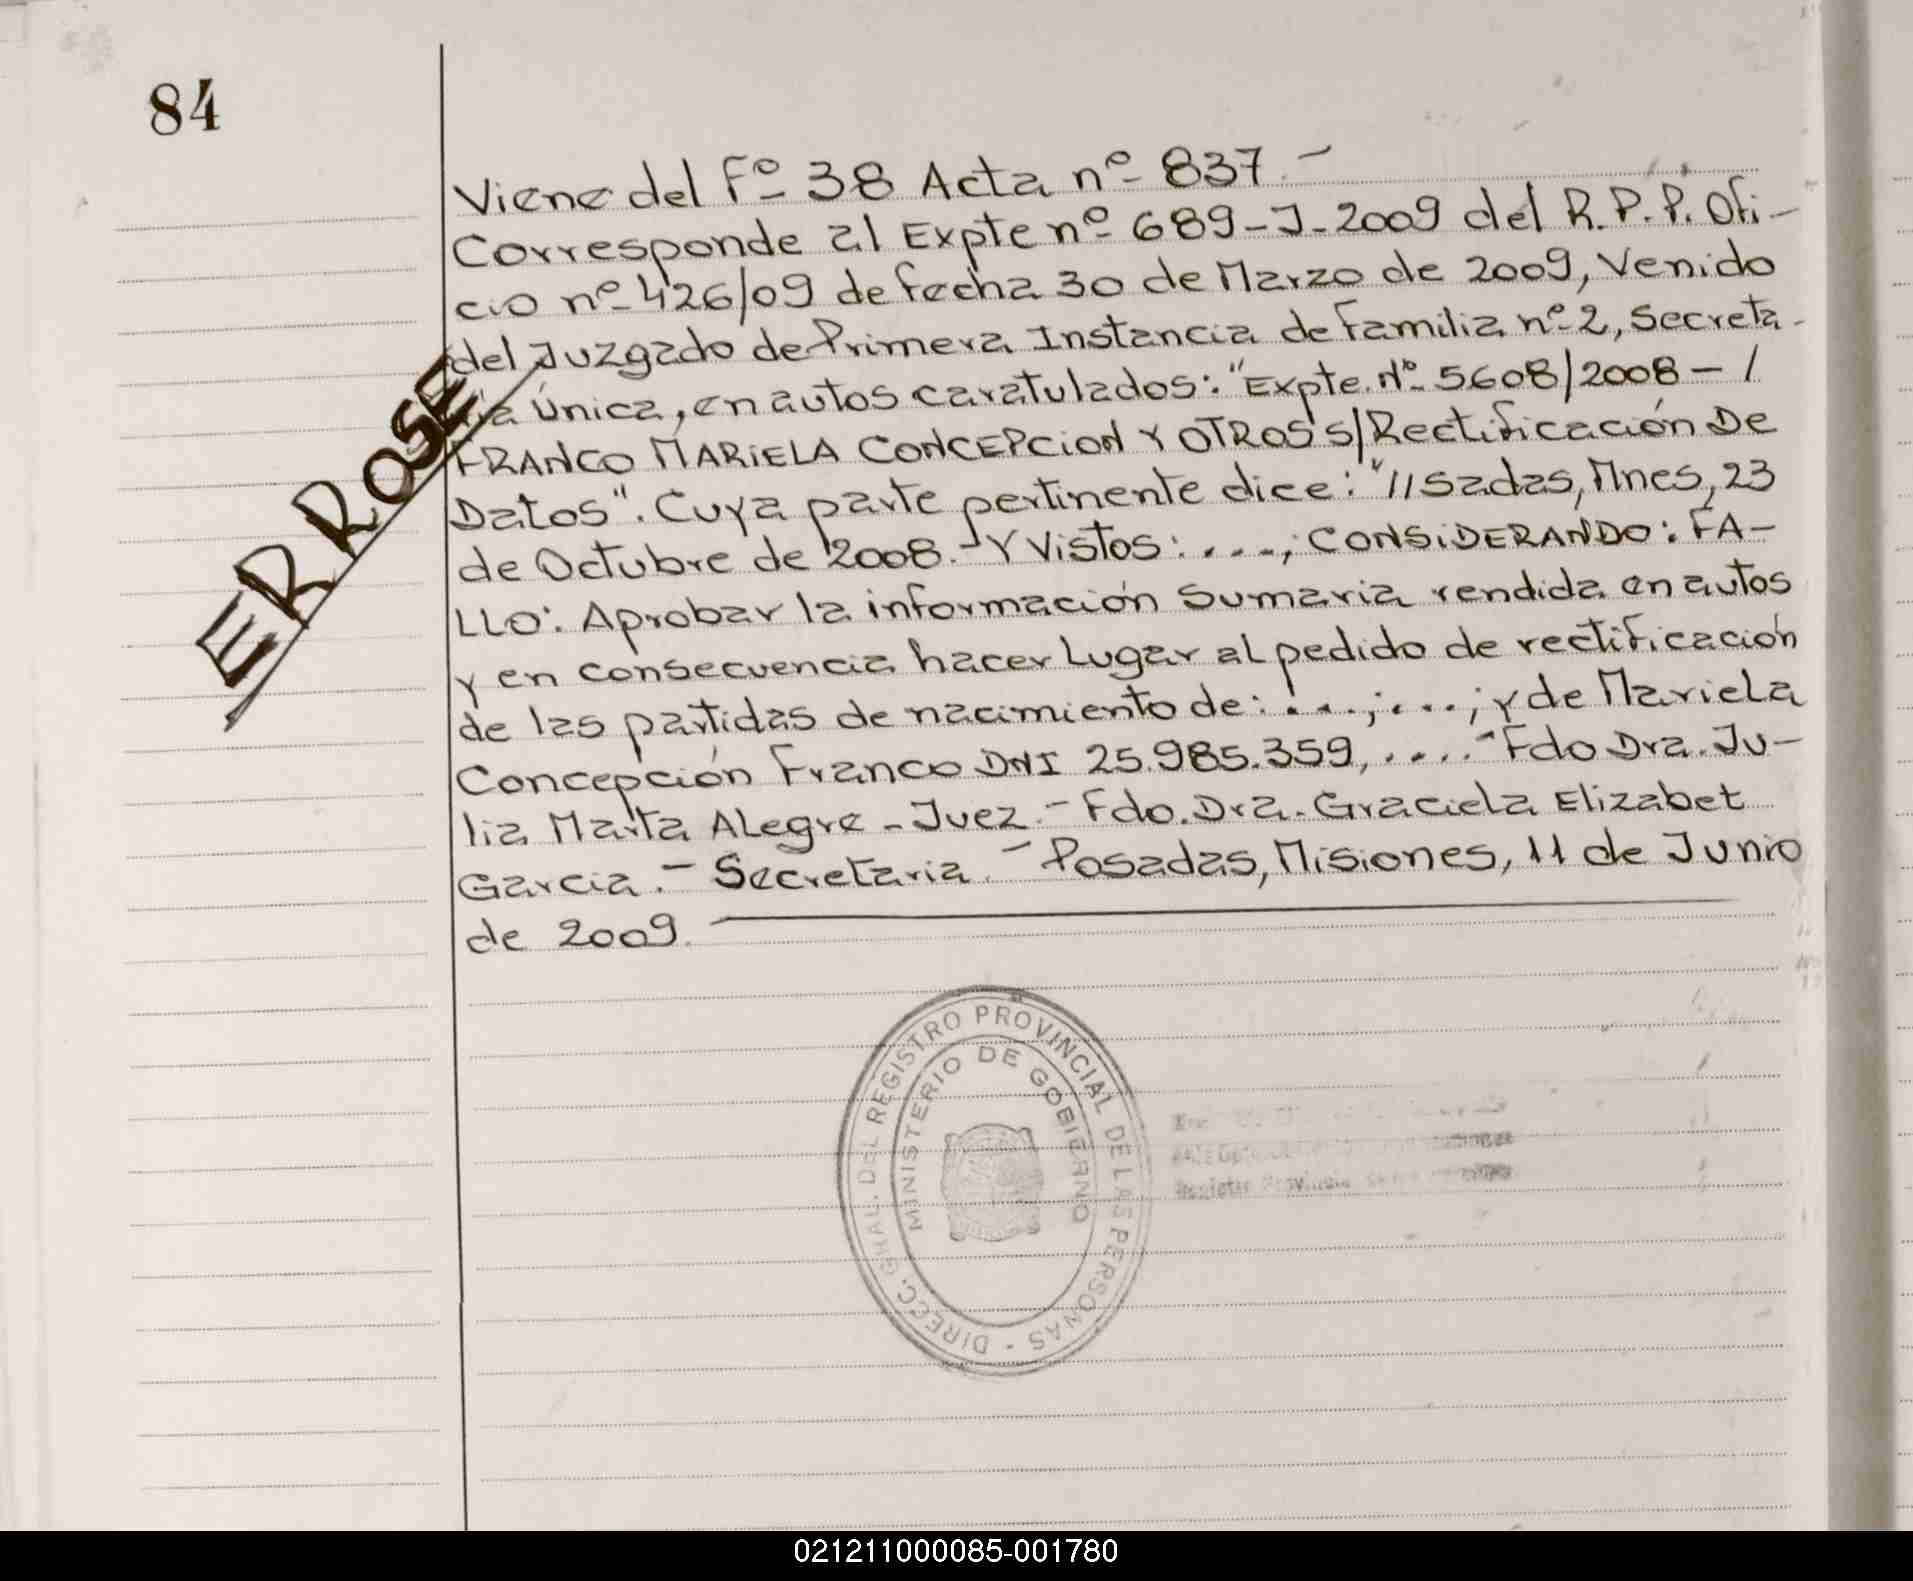 84
Viene del Fº 38 Acta nº 837.-
Corresponde al Expte nº 689-J-2009 del R.P.P. Ofi-
cio nº 426/09 de fecha 30 de Marzo de 2009, Venido
del Juzgado de Primera Instancia de Familia nº 2, Secreta-
ria Única, en autos caratulados: "Expte. Nº 5608/2008 - /
FRANCO MARIELA CONCEPCION Y OTROS S/Rectificación De
Datos". Cuya parte pertinente dice: "//sadas, Mnes, 23
de Octubre de 2008.- Y Vistos: ....; CONSIDERANDO: FA-
LLO: Aprobar la información Sumaria rendida en autos
y en consecuencia hacer Lugar al pedido de rectificación
de las partidas de nacimiento de: ...;...; y de Mariela
Concepción Franco DNI 25.985.359, ....- Fdo Dra. Ju-
lia Marta Alegre - Juez.- Fdo. Dra. Graciela Elizabet
Garcia.- Secretaria.- Posadas, Misiones, 11 de Junio
de 2009.
ERROSE
DIREC. GRAL. DEL REGISTRO PROVINCIAL DE LAS PERSONAS -
MINISTERIO DE GOBIERNO
Registro
021211000085-001780